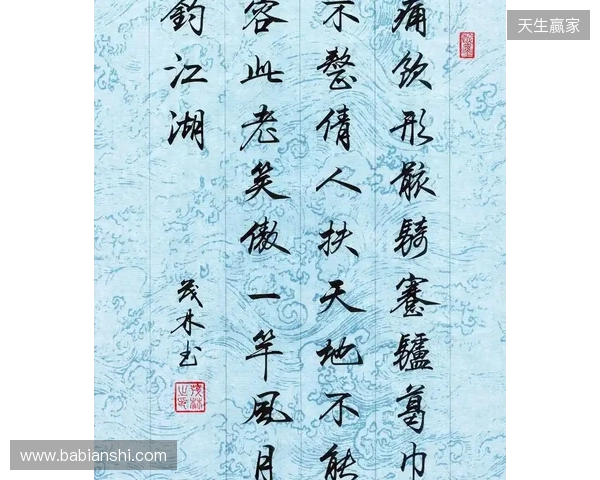 天生赢家
痛飲形骸騎蹇驢葛巾
不整倩人扶天地不能
容此老笑傲一竿風月
釣江湖
茂林书
www.babianshi.com